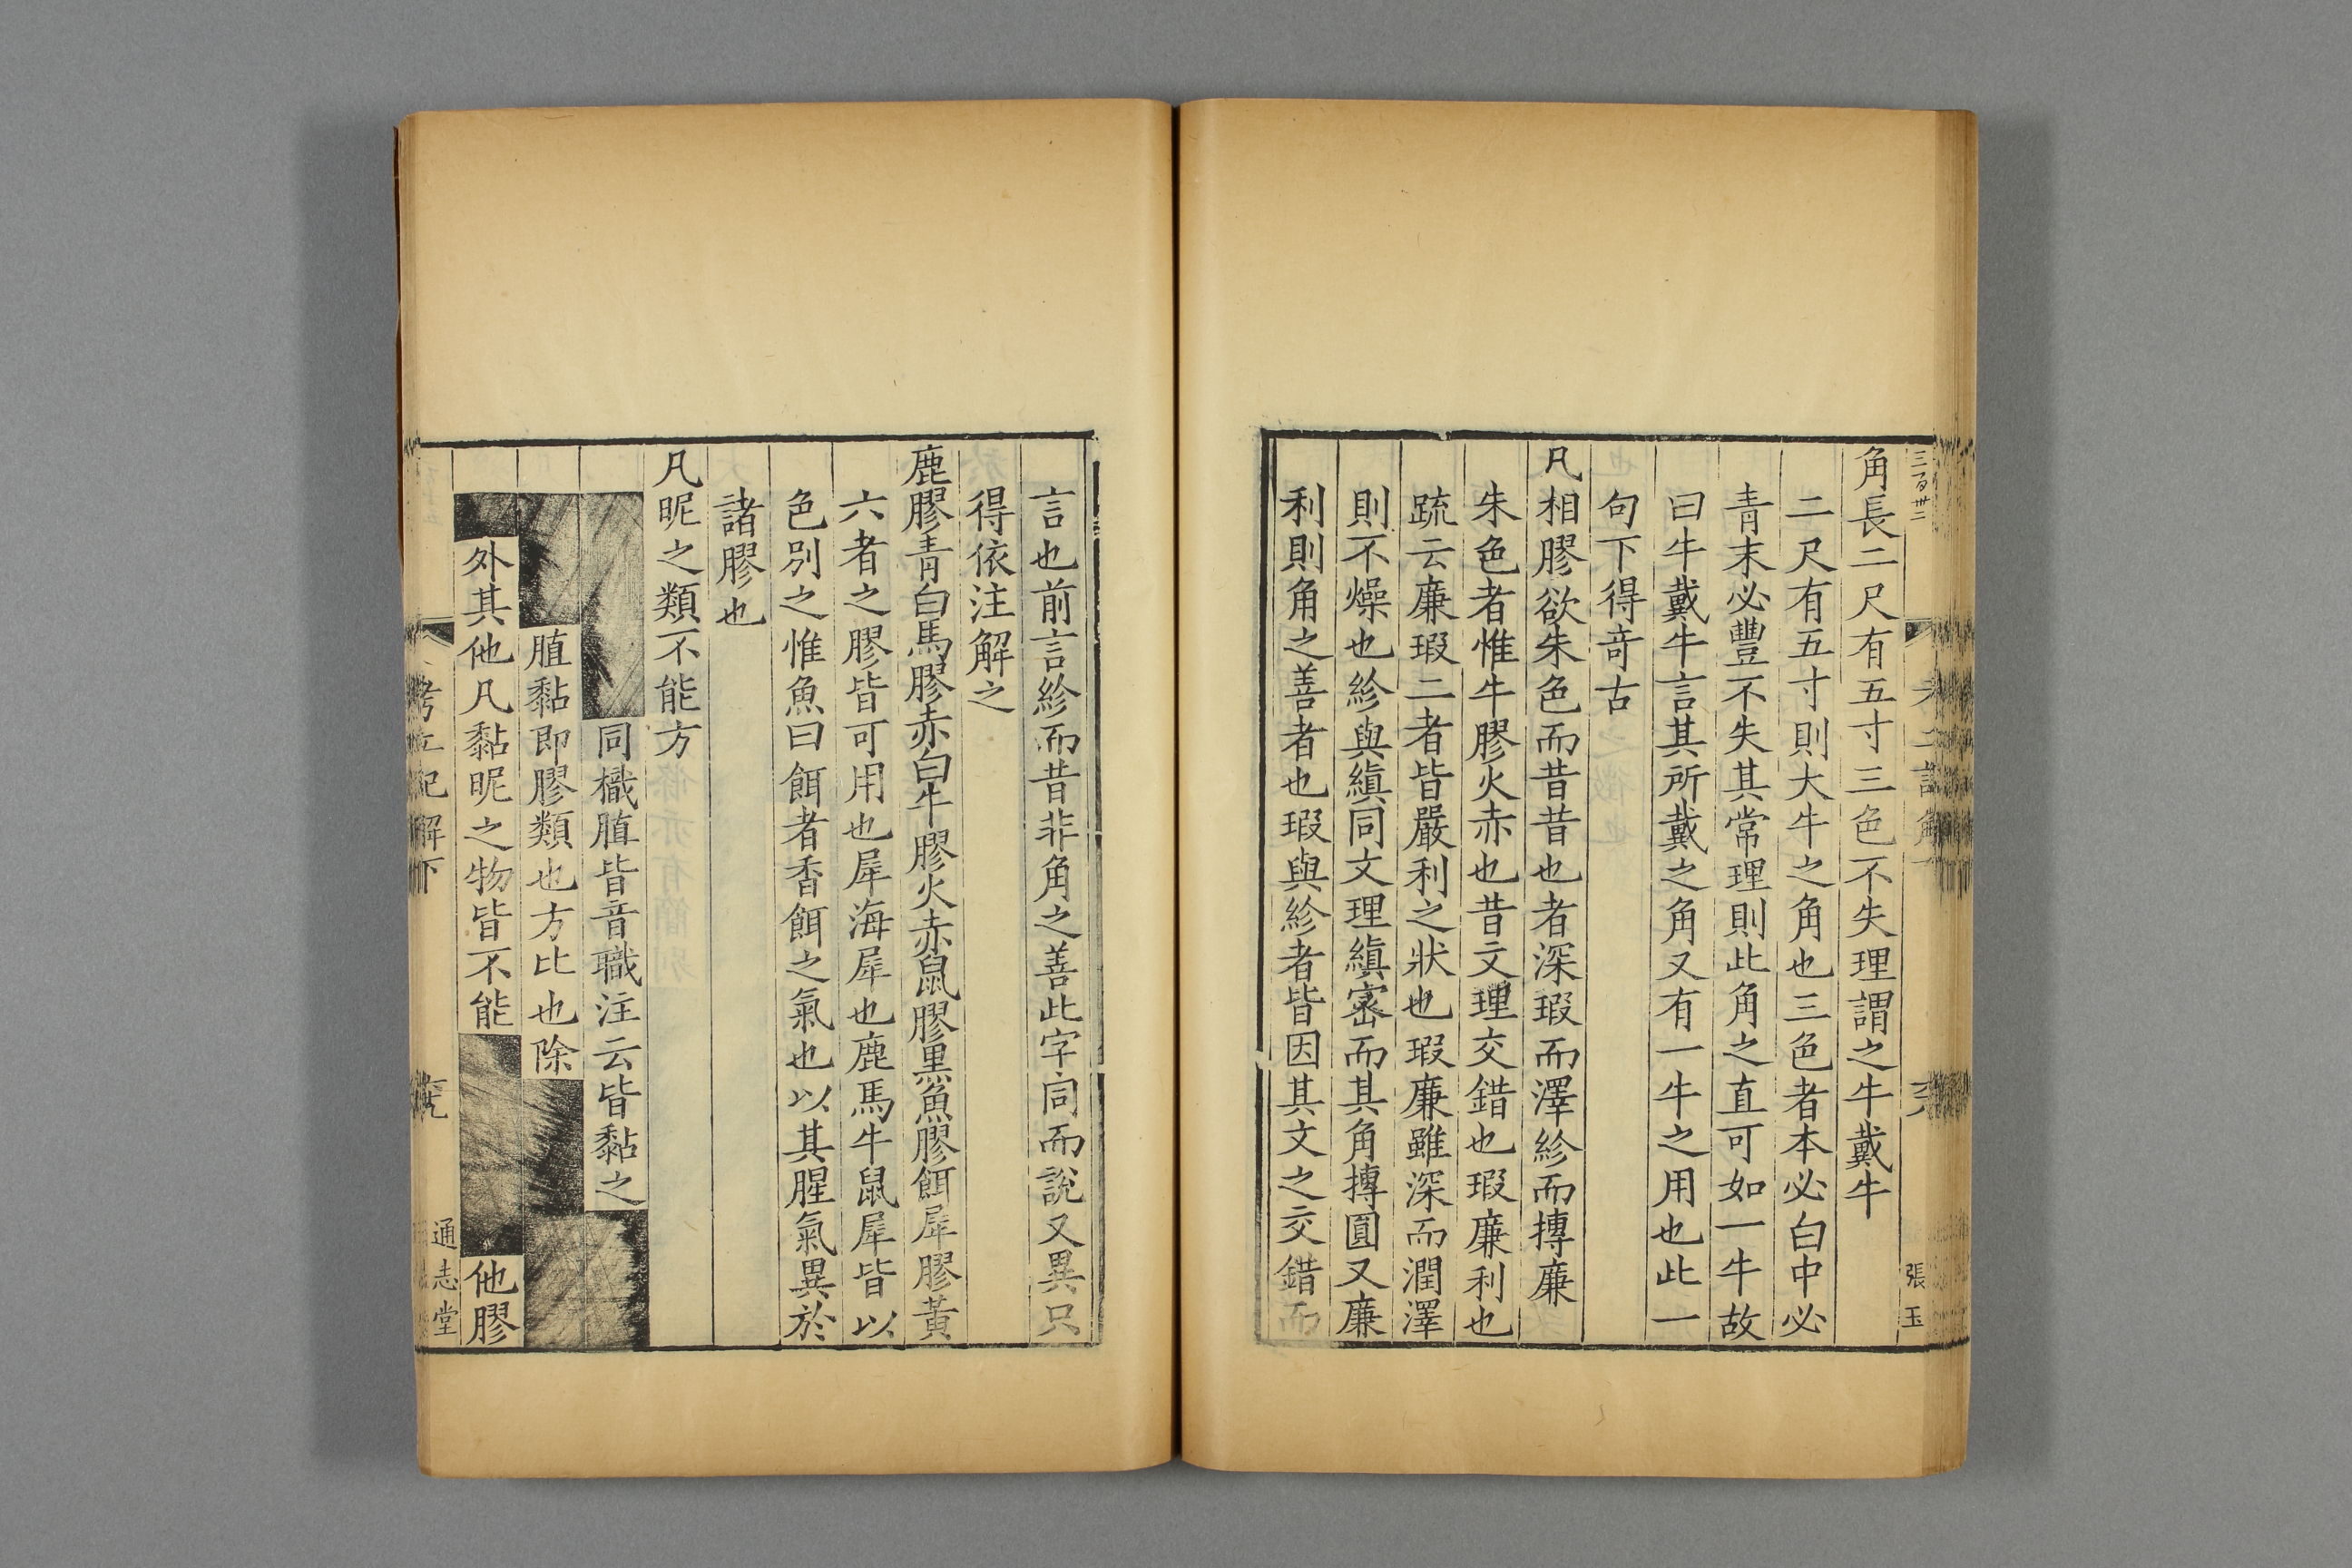 三百卅二
張玉
角長二尺有五寸三色不失理謂之牛戴牛
二尺有五寸則大牛之角也三色者本必白中必
青末必豐不失其常理則此角之直可如一牛故
曰牛戴牛言其所戴之角又有一牛之用也此一
句下得奇古
凡相膠欲朱色而昔昔也者深瑕而澤紾而摶廉
朱色者惟牛膠火赤也昔文理交錯也瑕廉利也
疏云廉瑕二者皆嚴利之狀也瑕廉雖深而潤澤
則不燥也紾與縝同文理縝密而其角摶圓又廉
利則角之善者也瑕與紾者皆因其文之交錯而
言也前言紾而昔非角之善此字同而說又異只
得依注解之
鹿膠青白馬膠赤白牛膠火赤鼠膠黑魚膠餌犀膠黃
六者之膠皆可用也犀海犀也鹿馬牛鼠犀皆以
色別之惟魚曰餌者香餌之氣也以其腥氣異於
諸膠也
凡昵之類不能方
同樴䐈皆音職注云皆黏之
䐈黏即膠類也方比也除
外其他凡黏昵之物皆不能
他膠
考工記解下
通志堂